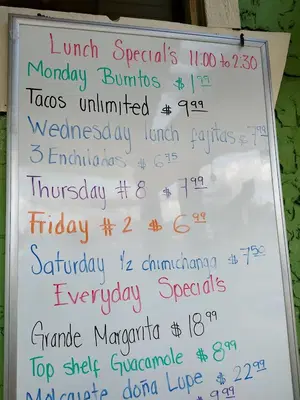 Lunch Special's 11:00 to 2:30
Monday Burritos $1.99
Tacos unlimited $9.99
Wednesday lunch fajitas $7.99
3 Enchiladas $6.95
Thursday #8 $7.99
Friday #2 $6.99
Saturday 1/2 chimichanga $7.50
Everyday Special's
Grande Margarita $18.99
Top shelf Guacamole $8.99
Molcajete doña Lupe $22.99
$9.99